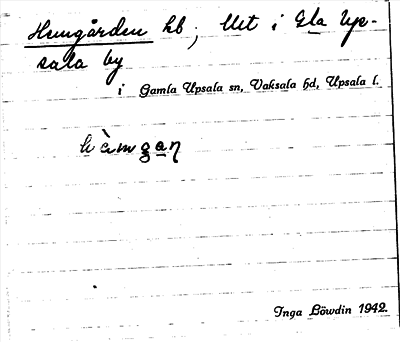 Hemgården hb, Utt i Gla Up-
sala by
i Gamla Upsala sn, Vaksala hd, Upsala l.
hàmgaɳ
Inga Löwdin 1942.